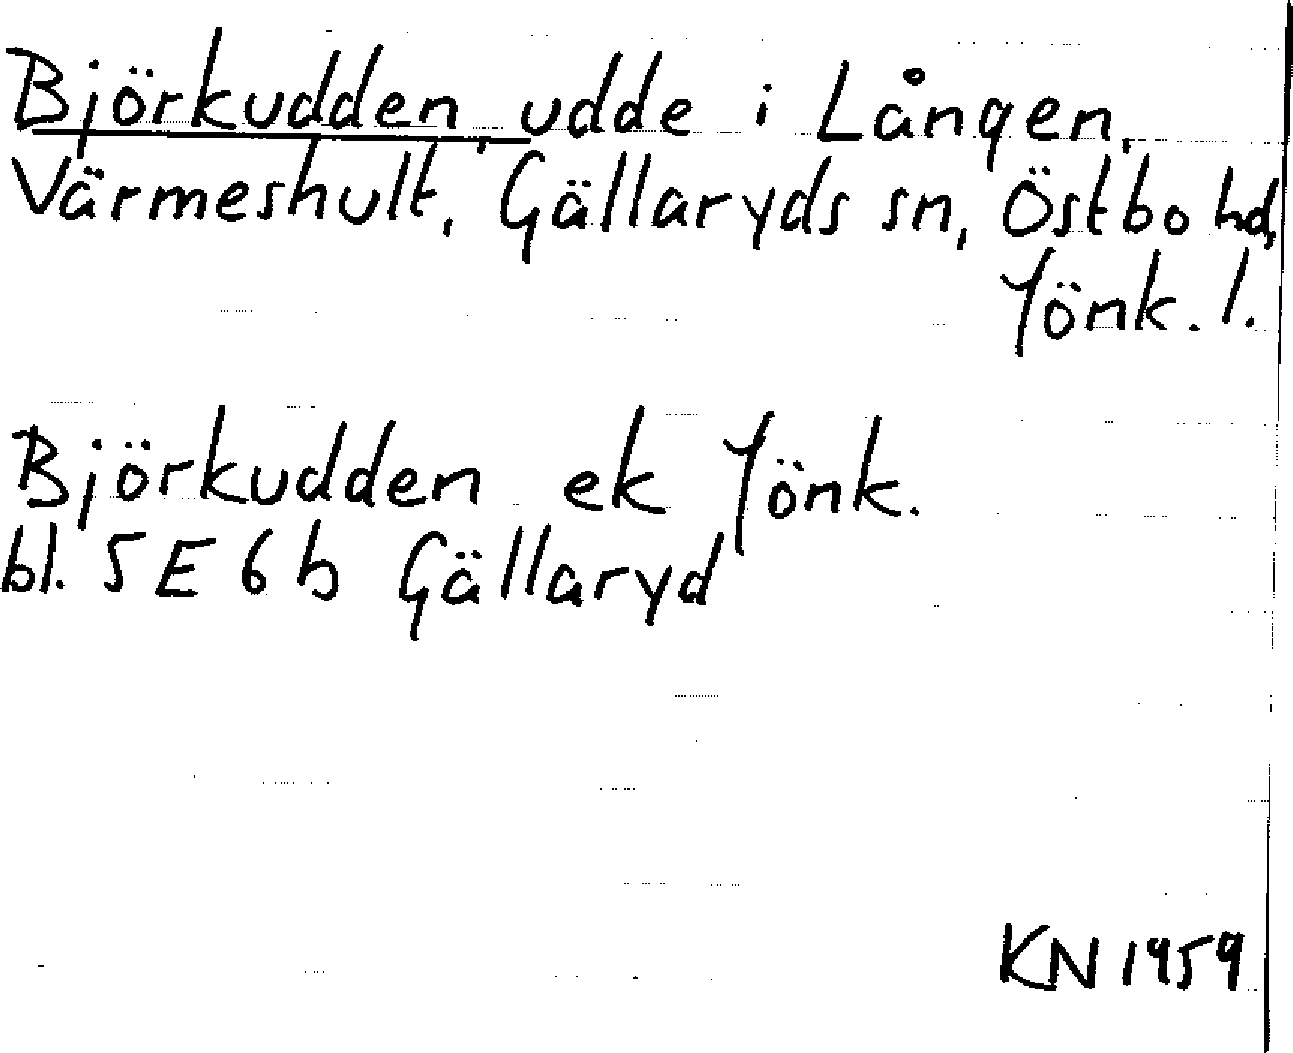 Björkudden, udde i Lången,
Värmeshult, Gällaryds sn, Östbo hd,
Jönk. l.
Björkudden ek Jönk.
bl. 5 E 6 b Gällaryd
KN 1959